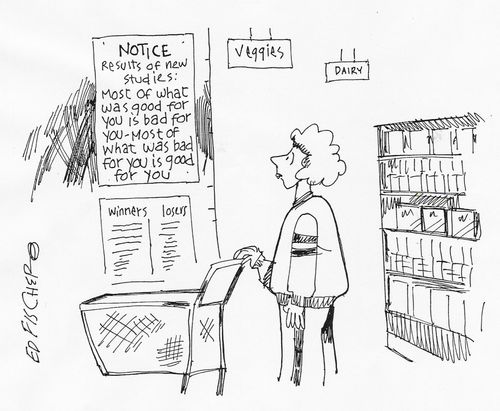 NOTICE
Results of new
studies:
Most of what
was good for
you is bad for
you-Most of
what was bad
for you is good
for you
winners losers
Veggies
DAIRY
ED FISCHER